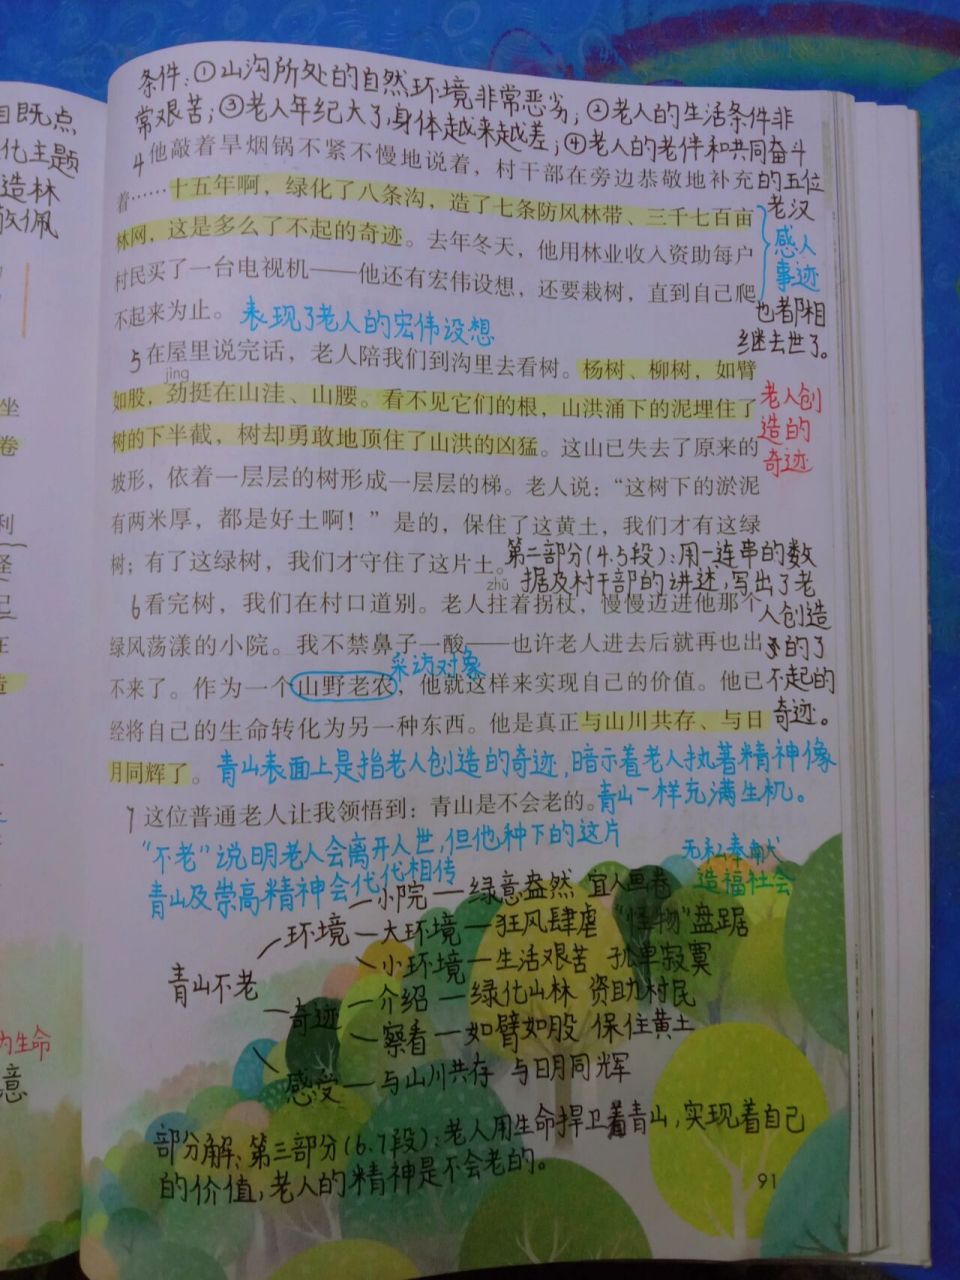 目既点
化主题
造林
敬佩
坐
卷
利
怪
己
在
造
为生命
意
条件:①山沟所处的自然环境非常恶劣;②老人的生活条件非
常艰苦;③老人年纪大了,身体越来越差;④老人的老伴和共同奋斗
的五位
老汉
也都相
继去世了。
4他敲着旱烟锅不紧不慢地说着,村干部在旁边恭敬地补充
着……十五年啊,绿化了八条沟,造了七条防风林带、三千七百亩
林网,这是多么了不起的奇迹。去年冬天,他用林业收入资助每户
村民买了一台电视机——他还有宏伟设想,还要栽树,直到自己爬
不起来为止。
感人
事迹
表现了老人的宏伟设想
5在屋里说完话,老人陪我们到沟里去看树。杨树、柳树,如臂
jìng
如股,劲挺在山洼、山腰。看不见它们的根,山洪涌下的泥埋住了
树的下半截,树却勇敢地顶住了山洪的凶猛。这山已失去了原来的
坡形,依着一层层的树形成一层层的梯。老人说:“这树下的淤泥
有两米厚,都是好土啊!”是的,保住了这黄土,我们才有这绿
树;有了这绿树,我们才守住了这片土。
老人创
造的
奇迹
第二部分(4.5段):用一连串的数
据及村干部的讲述,写出了老
人创造
的了
不起的
奇迹。
zhǔ
6看完树,我们在村口道别。老人拄着拐杖,慢慢迈进他那个
绿风荡漾的小院。我不禁鼻子一酸——也许老人进去后就再也出
不来了。作为一个山野老农,他就这样来实现自己的价值。他已
经将自己的生命转化为另一种东西。他是真正与山川共存、与日
月同辉了。
采访对象
青山表面上是指老人创造的奇迹,暗示着老人执着精神像
青山一样充满生机。
7这位普通老人让我领悟到:青山是不会老的。
“不老”说明老人会离开人世,但他种下的这片
青山及崇高精神会代代相传
无私奉献
造福社会
青山不老
环境
小院—绿意盎然 宜人画卷
大环境—狂风肆虐 “怪物”盘踞
小环境—生活艰苦 孤单寂寞
奇迹
介绍—绿化山林 资助村民
察看—如臂如股 保住黄土
感受—与山川共存 与日月同辉
部分解:第三部分(6.7段):老人用生命捍卫着青山,实现着自己
的价值,老人的精神是不会老的。
91